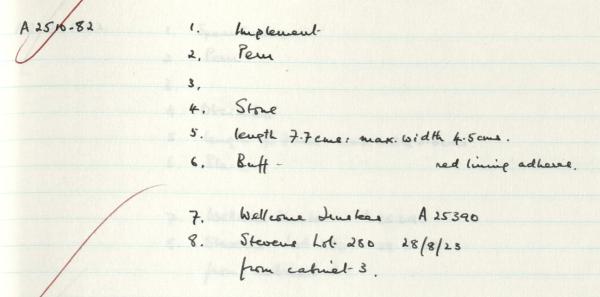 A 2510-82 1. Implement
2. Peru
3.
4. Stone
5. length 7.7cms: max. width 4.5cms.
6. Buff - red lining adheres.
7. Wellcome Trustees A 25390
8. Stevens Lot 280 28/8/23
from cabinet 3.